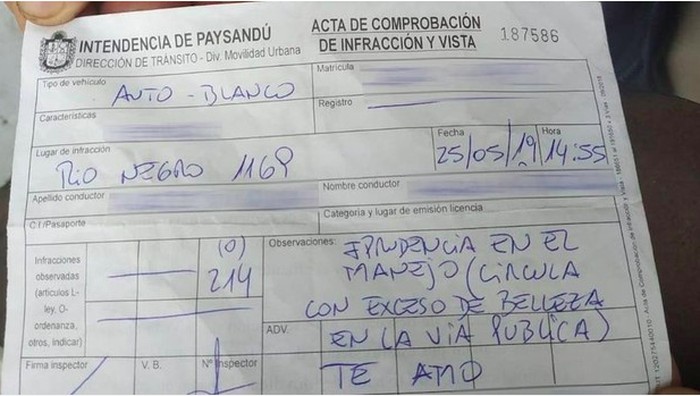 INTENDENCIA DE PAYSANDÚ
DIRECCIÓN DE TRÁNSITO - Div. Movilidad Urbana
ACTA DE COMPROBACIÓN
DE INFRACCIÓN Y VISTA
187586
Tipo de vehículo
AUTO - BLANCO
Matrícula
Características
Registro
Lugar de infracción
RIO NEGRO 1169
Fecha
25/05/19
Hora
14:55
Apellido conductor
Nombre conductor
C.I/Pasaporte
Categoría y lugar de emisión licencia
Infracciones
observadas
(artículos L-
ley, O-
ordenanza,
otros, indicar)
(0)
214
Observaciones:
IPRUDENCIA EN EL
MANEJO (CIRCULA
CON EXCESO DE BELLEZA
EN LA VIA PUBLICA)
TE AMO
ADV.
Firma inspector
V. B.
Nº Inspector